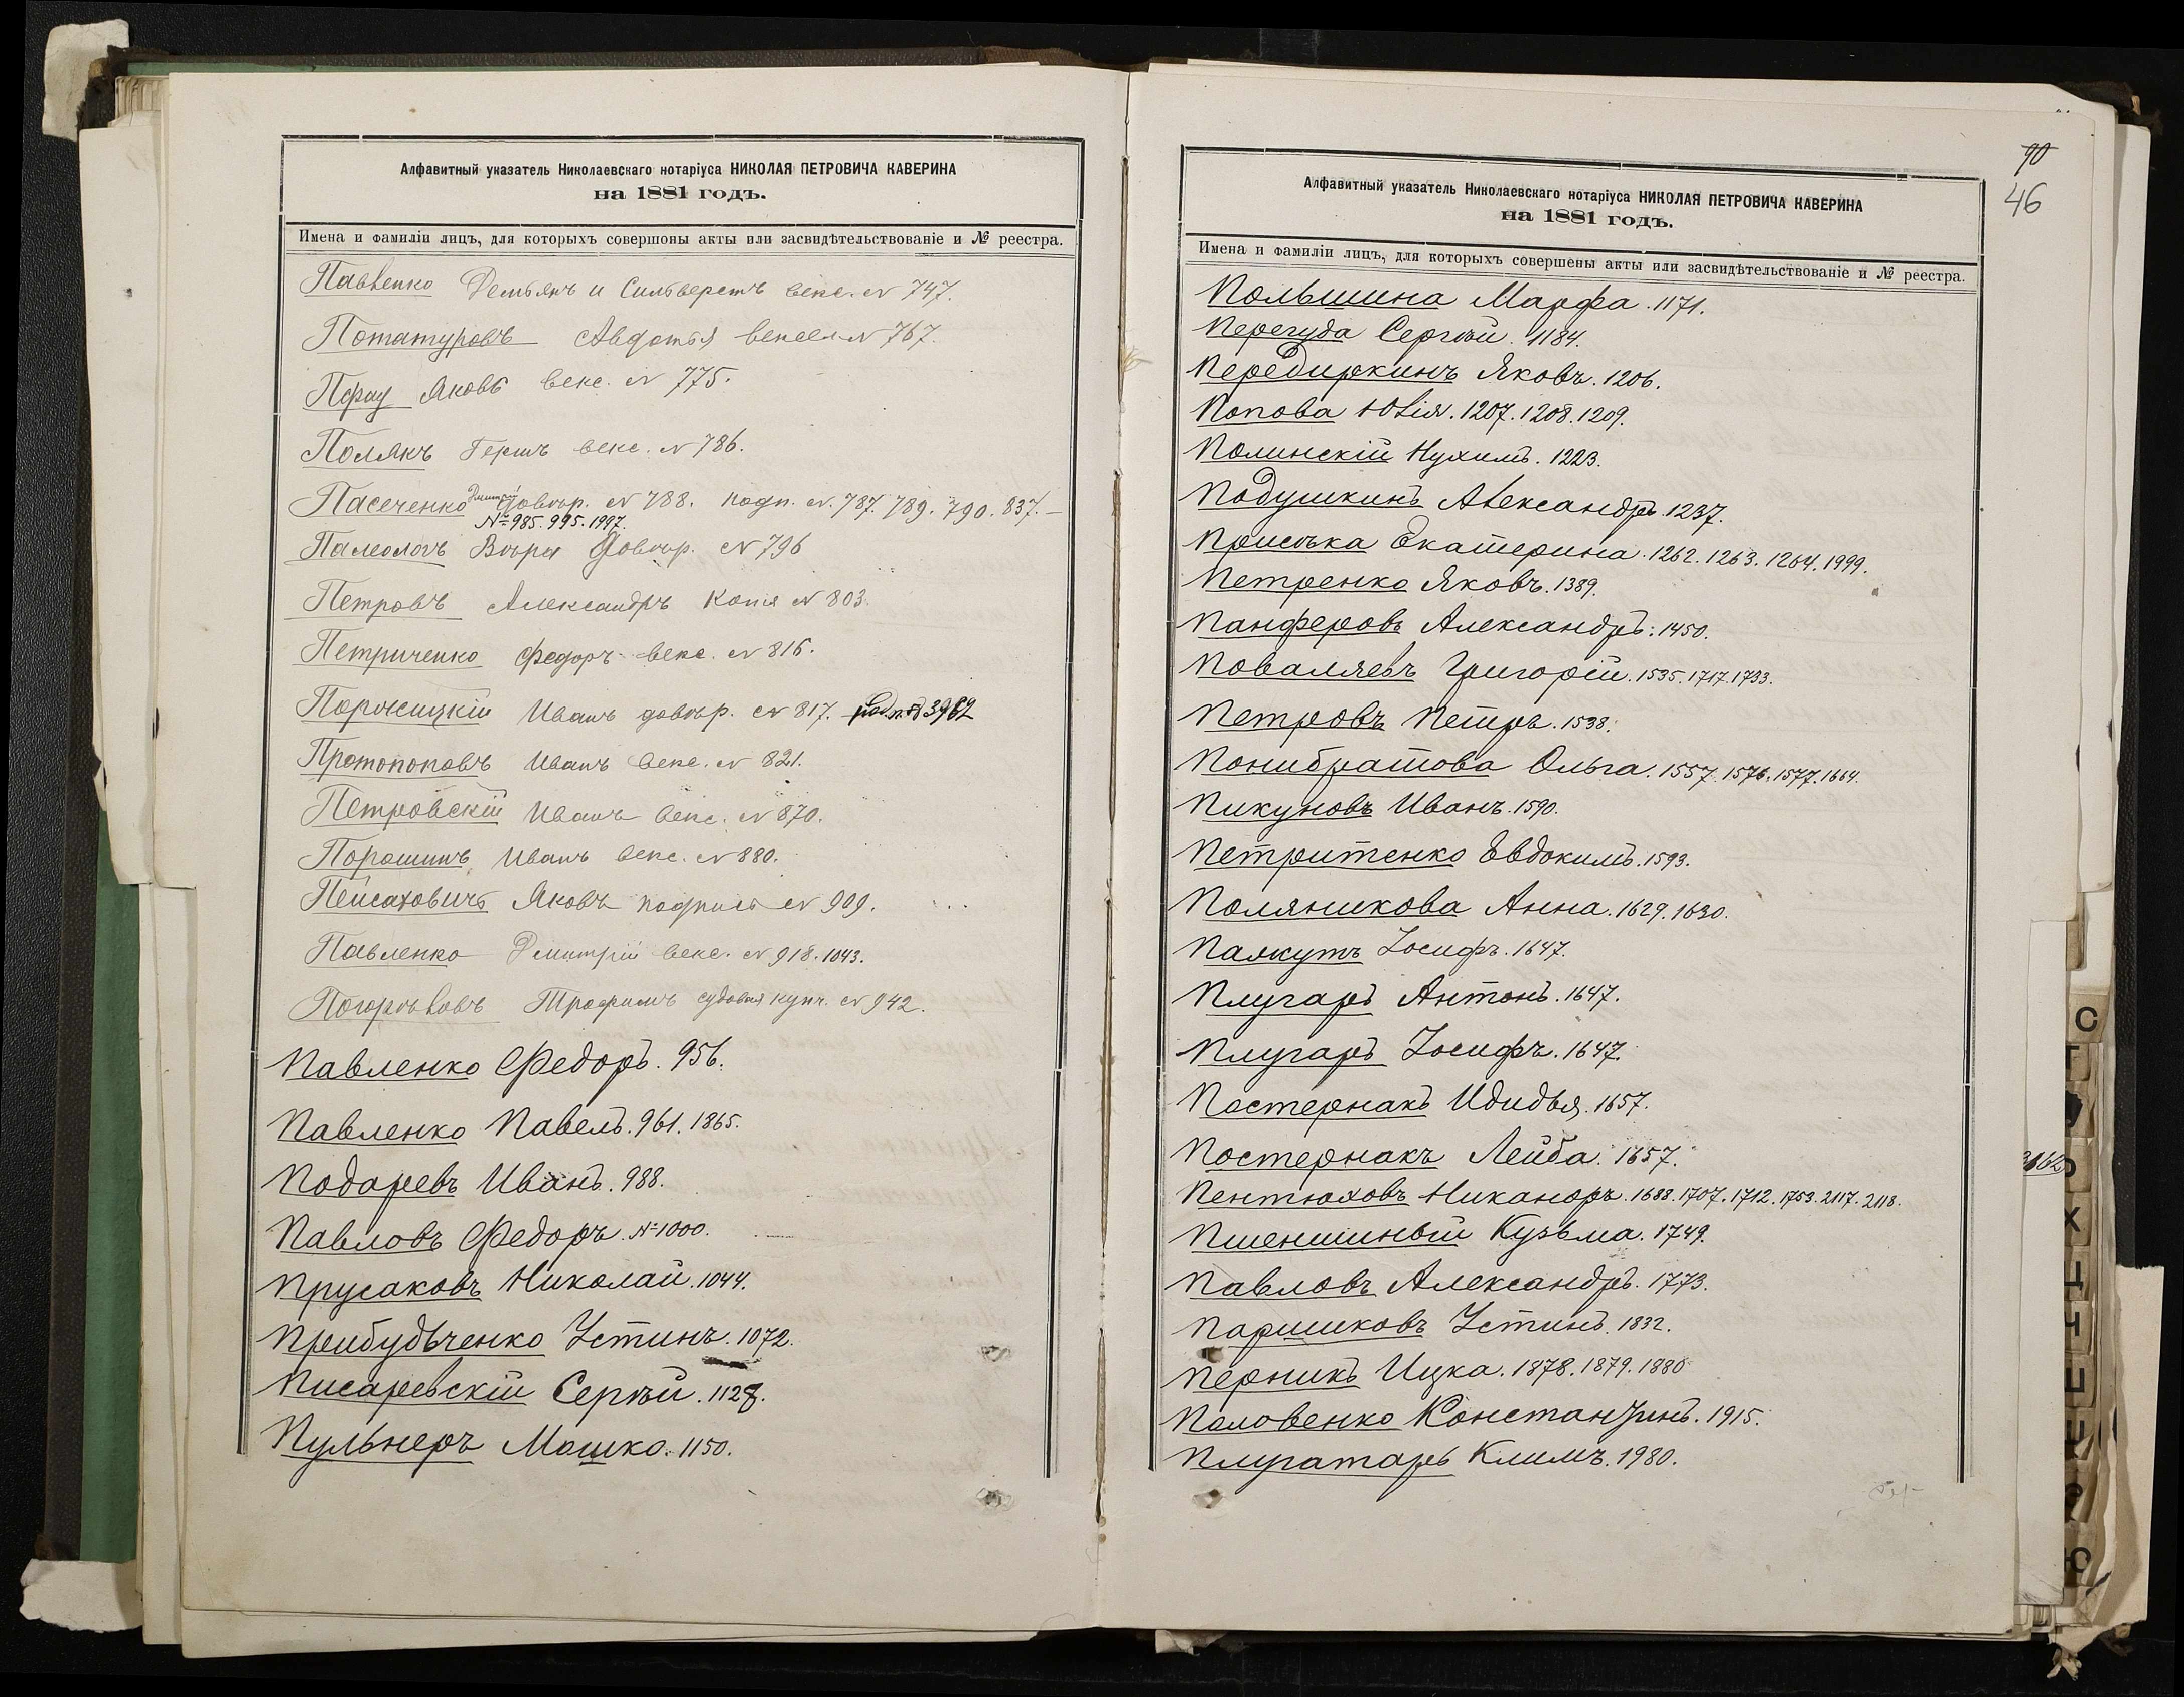 Алфавитный указатель Николаевскаго нотаріуса НИКОЛАЯ ПЕТРОВИЧА КАВЕРИНА
на 1881 годъ.
Имена и фамиліи лицъ, для которыхъ совершоны акты или засвидѣтельствованіе и № реестра.
Павленко Демьянъ и Сильверстъ векс. № 747.
Потатуровъ Авдотья вексел № 767.
Пфау Яковъ векс. № 775.
Полякъ Гершъ векс. № 786.
Пасеченко Дмитрій довѣр. № 788. подп. №. 787. 789. 790. 837.
№ 985. 995. 1997.
Палеологъ Вѣра Довѣр. № 796
Петровъ Александръ Копія № 803.
Петриченко Федоръ векс. № 816.
Порожицкій Иванъ довѣр. № 817. 3962
Протопоповъ Иванъ векс. № 821.
Петровскій Иванъ векс. № 870.
Порошинъ Иванъ векс. № 880.
Пейсаховичъ Яковъ подпись № 909.
Павленко Дмитрій векс. № 918. 1043.
Погорѣловъ Трофимъ судовая купч. № 942.
Павленко Федоръ. 956.
Павленко Павелъ. 961. 1865.
Подаревъ Иванъ. 988.
Павловъ Федоръ. № 1000.
Прусаковъ Николай. 1044.
Прибудьченко Устинъ. 1072.
Писаревскій Сергѣй. 1128.
Пульнеръ Мошко. 1150.
90
46
Алфавитный указатель Николаевскаго нотаріуса НИКОЛАЯ ПЕТРОВИЧА КАВЕРИНА
на 1881 годъ.
Имена и фамиліи лицъ, для которыхъ совершены акты или засвидѣтельствованіе и № реестра.
Польшина Марфа. 1171.
Перегуда Сергѣй. 1184.
Передиркинъ Яковъ. 1206.
Попова Юлія. 1207. 1208. 1209.
Полинскій Нухимъ. 1223.
Подушкинъ Александръ. 1237.
Присѣка Екатерина. 1262. 1263. 1264. 1999.
Петренко Яковъ. 1389.
Панферовъ Александръ. 1450.
Поваляевъ Григорій. 1535. 1717. 1733.
Петровъ Петръ. 1538.
Понибратова Ольга. 1557. 1576. 1577. 1664.
Пикуновъ Иванъ. 1590.
Петритенко Евдокимъ. 1593.
Поляникова Анна. 1629. 1630.
Паякутъ Іосифъ. 1647.
Плугаръ Антонъ. 1647.
Плугаръ Іосифъ. 1647.
Постернакъ Идидья. 1657.
Постернакъ Лейба. 1657.
Пентюховъ Никаноръ. 1688. 1707. 1712. 1753. 2117. 2118.
Пшеничный Кузьма. 1749.
Павловъ Александръ. 1773.
Паршиковъ Устинъ. 1832.
Перникъ Ицка. 1878. 1879. 1880
Половенко Константинъ. 1915.
Плугатарь Климъ. 1980.
С
Т
Х
Ц
Ч